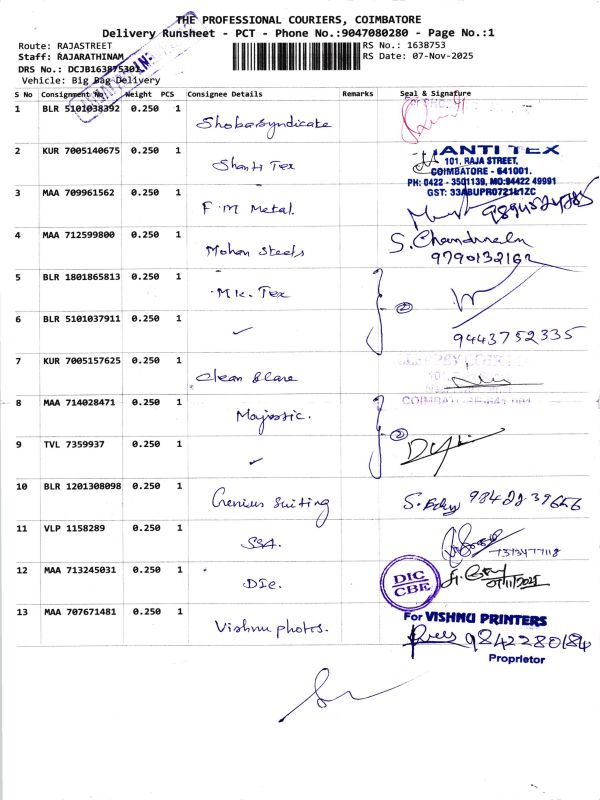 THE PROFESSIONAL COURIERS, COIMBATORE
Delivery Runsheet - PCT - Phone No.:9047080280 - Page No.:1
Route: RAJASTREET RS No.: 1638753
Staff: RAJARATHINAM RS Date: 07-Nov-2025
DRS No.: DCJB163875301
Vehicle: Big Bag Delivery
S No Consignment No. Weight PCS Consignee Details Remarks Seal & Signature
1 BLR 5101038392 0.250 1 Shoba Syndicate
2 KUR 7005140675 0.250 1 Shanti Tex
SHANTI TEX
101, RAJA STREET,
COIMBATORE - 641001.
PH: 0422 - 3501139, MO:94422 49991
GST: 33ABUPR0721L1ZC
3 MAA 709961562 0.250 1 F.M Metal.
4 MAA 712599800 0.250 1 Mohan Steels
9790132162
5 BLR 1801865813 0.250 1 Mk. Tex
②
6 BLR 5101037911 0.250 1 ✓
9443752335
7 KUR 7005157625 0.250 1 Clean Blare
8 MAA 714028471 0.250 1 Majestic.
②
9 TVL 7359937 0.250 1 ✓
10 BLR 1201308098 0.250 1 Genius Suiting
98422 39656
11 VLP 1158289 0.250 1 SSA.
7373477118
12 MAA 713245031 0.250 1 DIC.
DIC
CBE
07/11/2025
13 MAA 707671481 0.250 1 Vishnu photos.
For VISHNU PRINTERS
9842280184
Proprietor